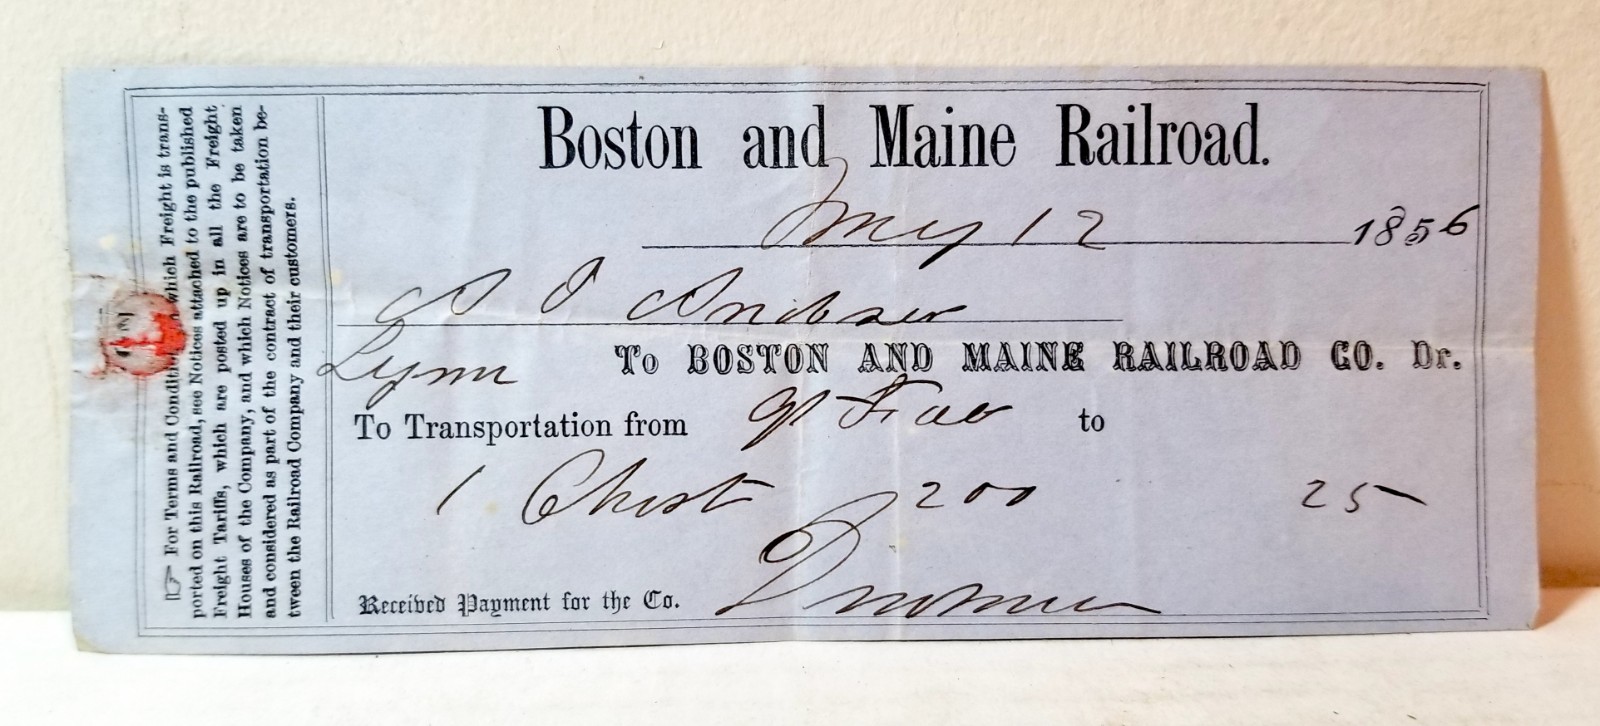 Boston and Maine Railroad.
May 12 1856
Lynn To BOSTON AND MAINE RAILROAD CO. Dr.
To Transportation from to
1 Chest 200 25
Received Payment for the Co.
☞ For Terms and Conditions on which Freight is trans-
ported on this Railroad, see Notices attached to the published
Freight Tariffs, which are posted up in all the Freight
Houses of the Company, and which Notices are to be taken
and considered as part of the contract of transportation be-
tween the Railroad Company and their customers.